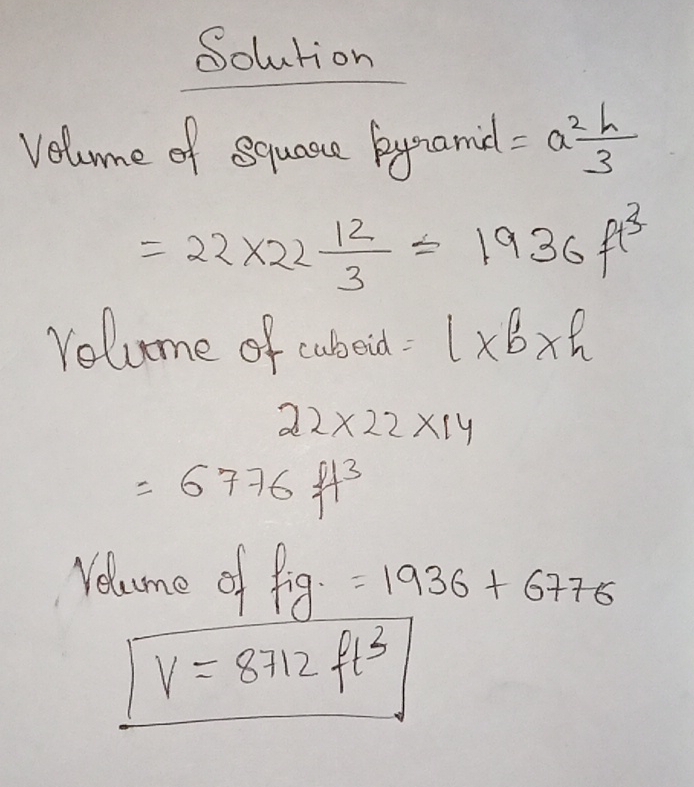 Solution
Volume of square pyramid = a² h/3
= 22 X 22 12/3 = 1936 ft³
Volume of cuboid = l x b x h
22 X 22 X 14
= 6776 ft³
Volume of fig. = 1936 + 6776
V = 8712 ft³